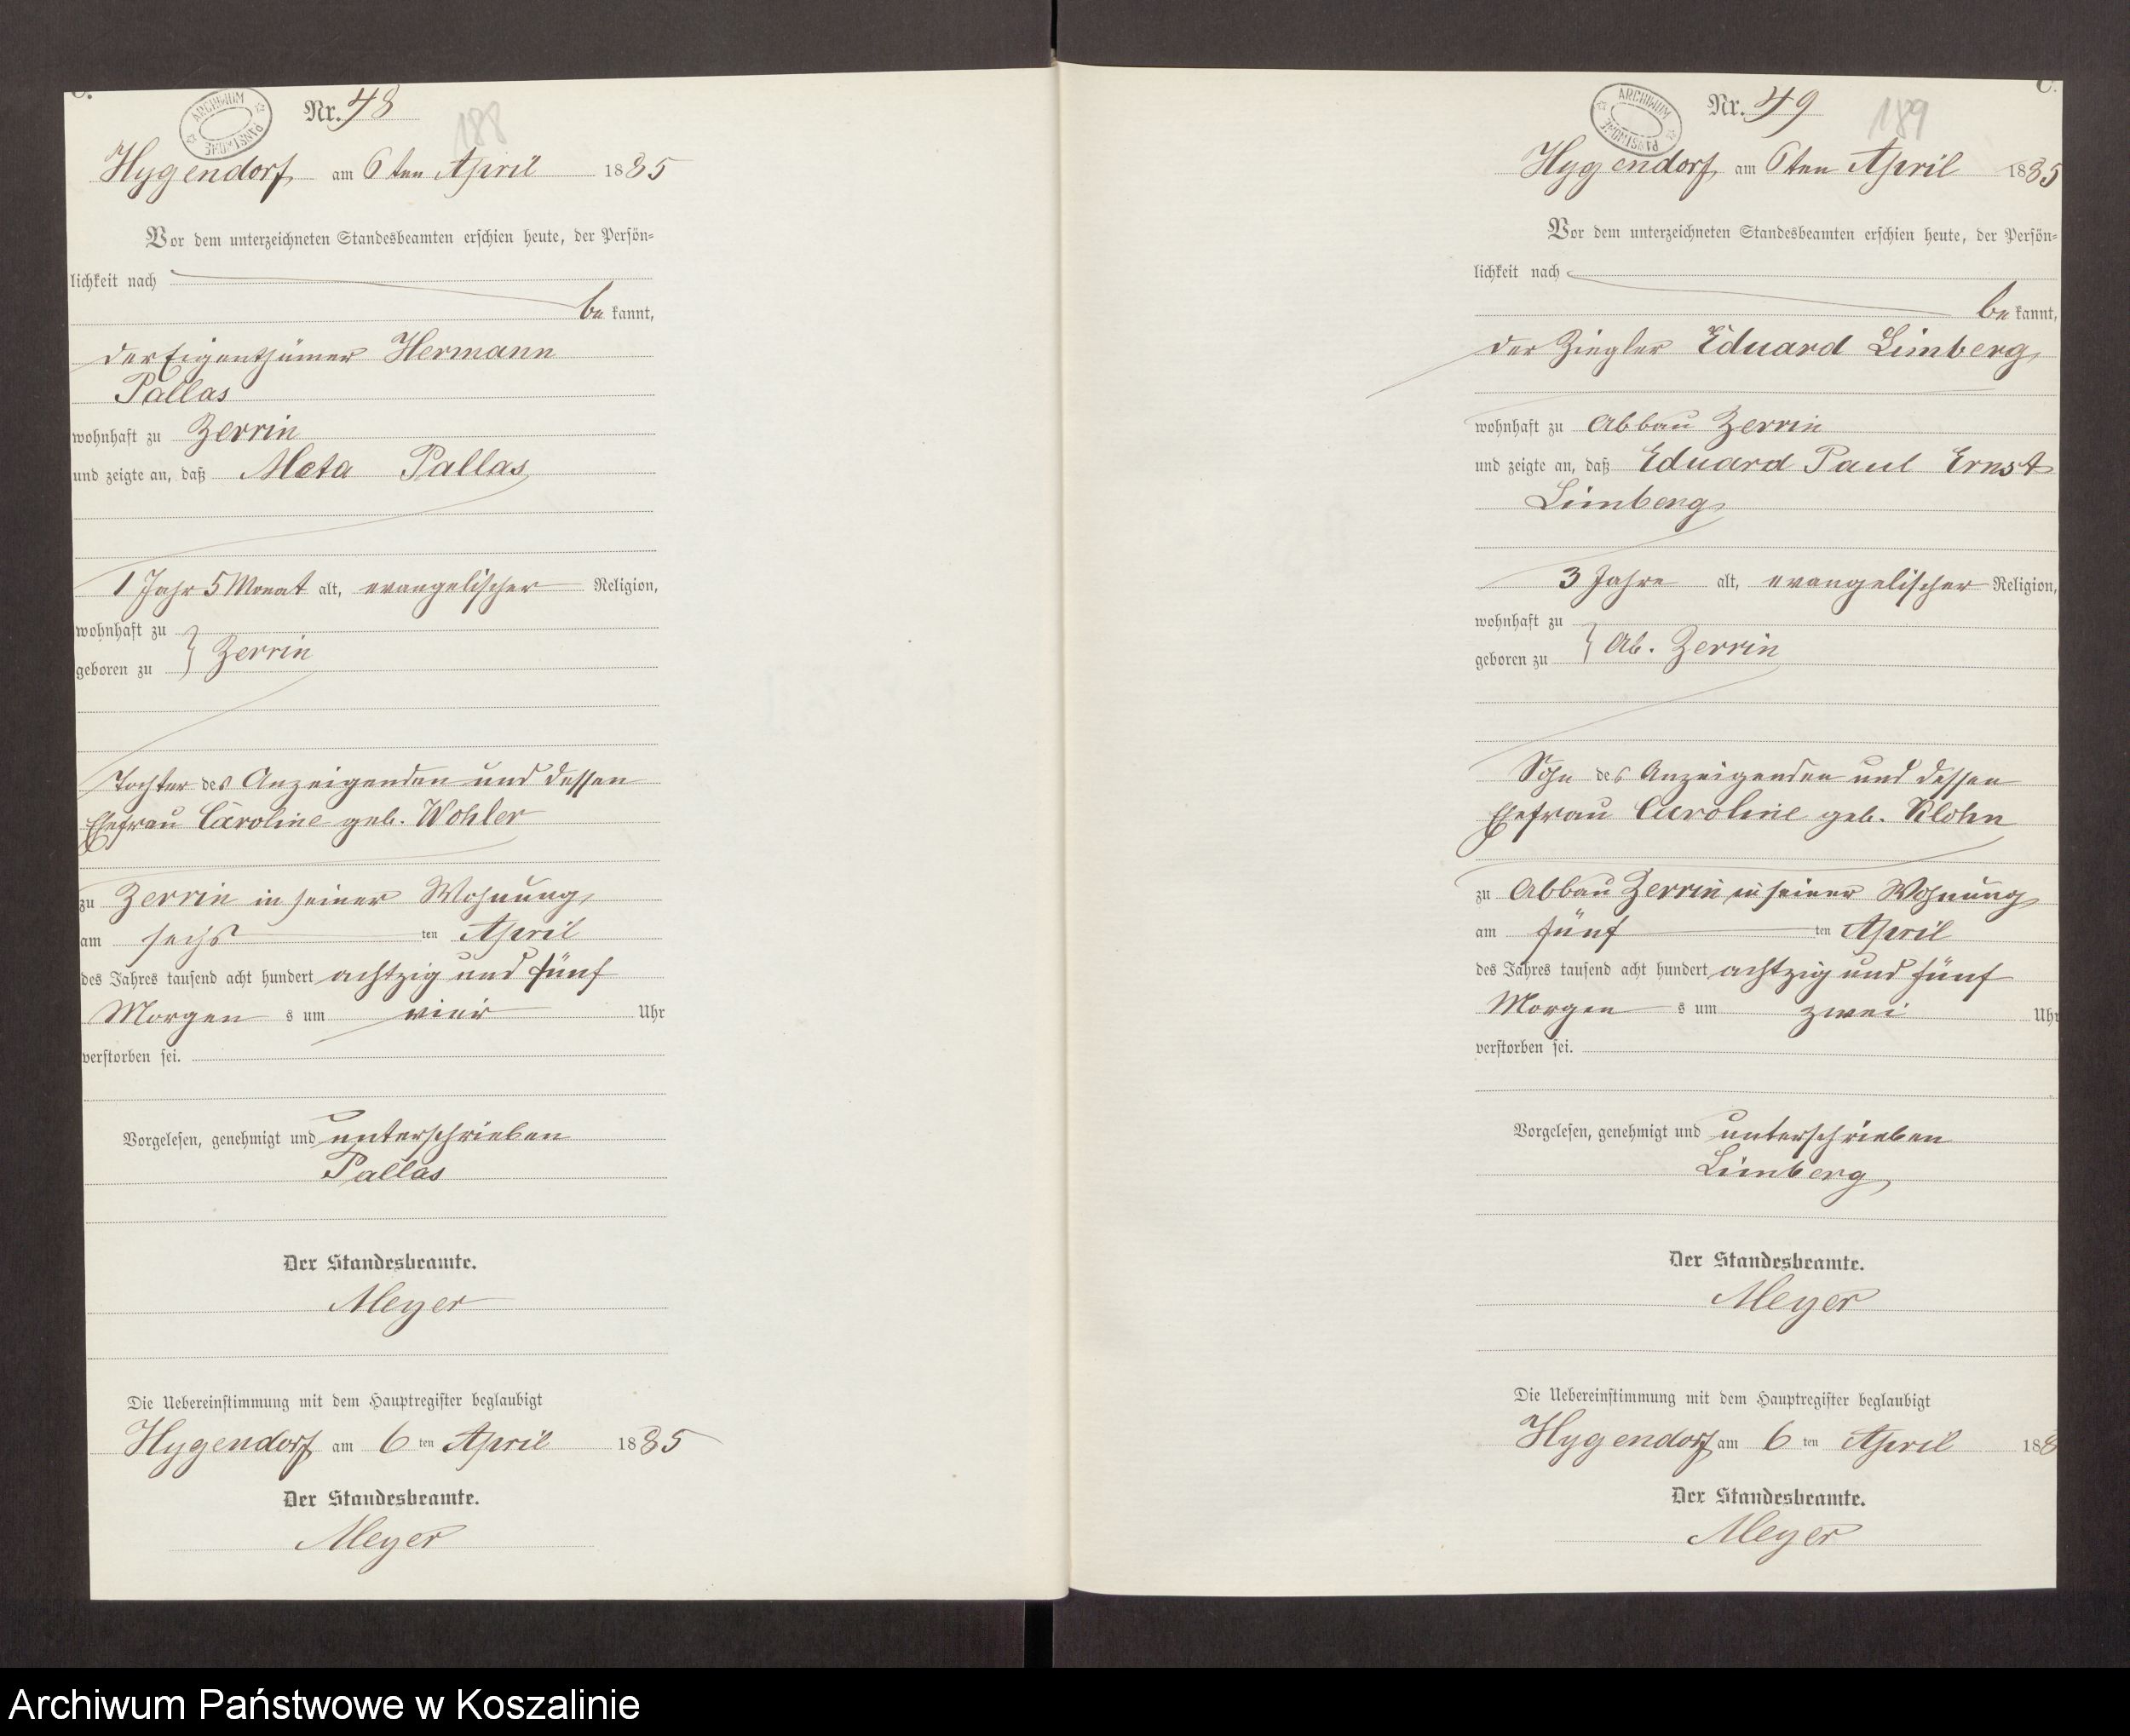 ARCHIWUM PAŃSTWOWE
Nr. 48
188
Hygendorf am 6ten April 1885
Vor dem unterzeichneten Standesbeamten erschien heute, der Persön=
lichkeit nach
be kannt,
der Eigenthümer Hermann
Pallas
wohnhaft zu Zerrin
und zeigte an, daß Meta Pallas
1 Jahr 5 Monat alt, evangelischer Religion,
wohnhaft zu
geboren zu } Zerrin
Tochter des Anzeigenden und dessen
Ehefrau Caroline geb. Wohler
zu Zerrin in seiner Wohnung
am sechs ten April
des Jahres tausend acht hundert achtzig und fünf
Morgen s um vier Uhr
verstorben sei.
Vorgelesen, genehmigt und unterschrieben
Pallas
Der Standesbeamte.
Meyer
Die Uebereinstimmung mit dem Hauptregister beglaubigt
Hygendorf am 6 ten April 1885
Der Standesbeamte.
Meyer
C.
ARCHIWUM PAŃSTWOWE
Nr. 49
189
Hygendorf am 6ten April 1885
Vor dem unterzeichneten Standesbeamten erschien heute, der Persön=
lichkeit nach
be kannt,
der Ziegler Eduard Limberg
wohnhaft zu Abbau Zerrin
und zeigte an, daß Eduard Paul Ernst
Limberg
3 Jahre alt, evangelischer Religion,
wohnhaft zu
geboren zu } Ab. Zerrin
Sohn des Anzeigenden und dessen
Ehefrau Caroline geb. Klohn
zu Abbau Zerrin in seiner Wohnung
am fünf ten April
des Jahres tausend acht hundert achtzig und fünf
Morgen s um zwei Uhr
verstorben sei.
Vorgelesen, genehmigt und unterschrieben
Limberg
Der Standesbeamte.
Meyer
Die Uebereinstimmung mit dem Hauptregister beglaubigt
Hygendorf am 6 ten April 188
Der Standesbeamte.
Meyer
Archiwum Państwowe w Koszalinie